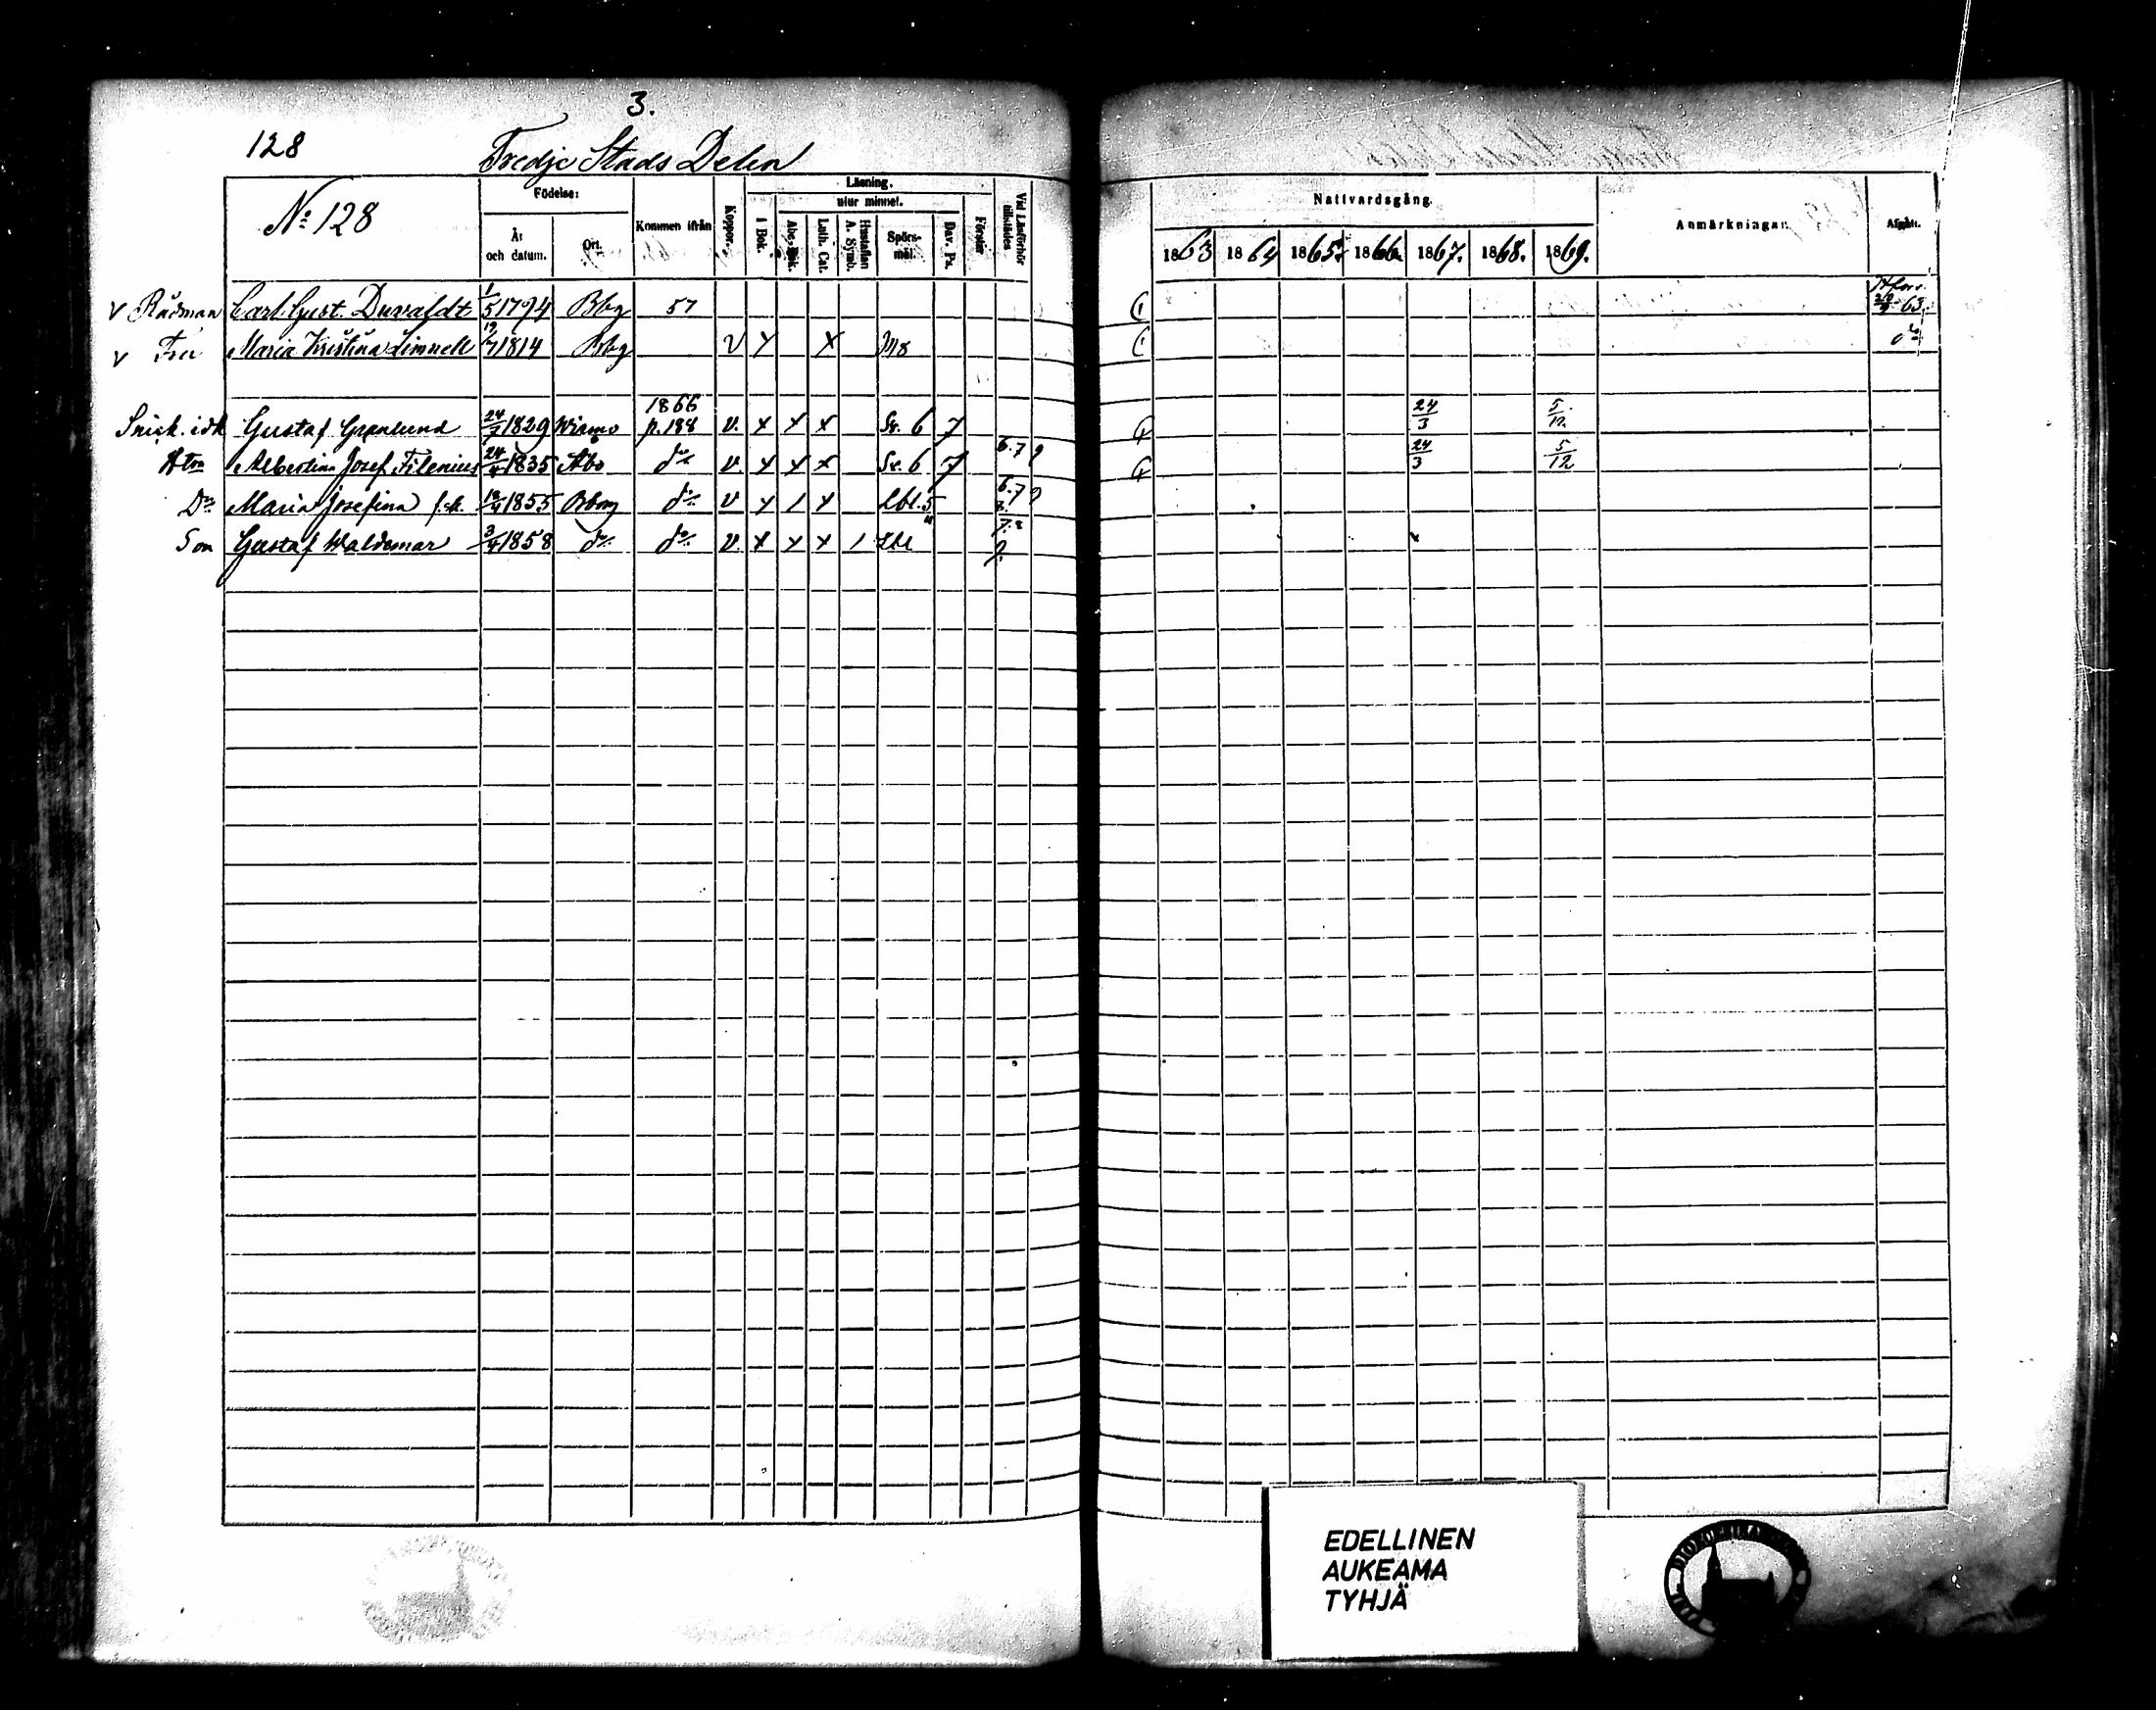 3.
128 Tredje Stads Delen
No 128
Födelse:
År och datum.
Ort.
Kommen ifrån
Koppor.
Läsning.
i Bok.
utur minnet.
Abc-Bok.
Luth. Cat.
Hustaflan A. Symb.
Spörsmål.
Dav. Ps.
Förstår
Vid Läsförhör tillstädes
Nattvardsgång.
1863 1864 1865. 1866. 1867. 1868. 1869.
Anmärkningar.
Afgått.
v Rådman Carl Gust. 1/5 1794 Bbg 57 Hfors 63.
v Fru Maria Kristina Limnell 19/7 1814 Bbg v x x do
Snick. idk Gustaf Granlund 24/7 1829 Wirmo 1866 p. 188 v. x x x Sv. 6 7 24/3 5/12
Hon Albertina Josef. Filenius 24/4 1835 Åbo do v. x x x Sv. 6 7 6. 7 9 24/3 5/12
Dr Maria Josefina 18/4 1855 Bborg do v x / x Lbl. 5 6. 7 9
Son Gustaf Waldemar 3/4 1858 do do v. x x x / Lbl 7. 8 9.
EDELLINEN
AUKEAMA
TYHJÄ